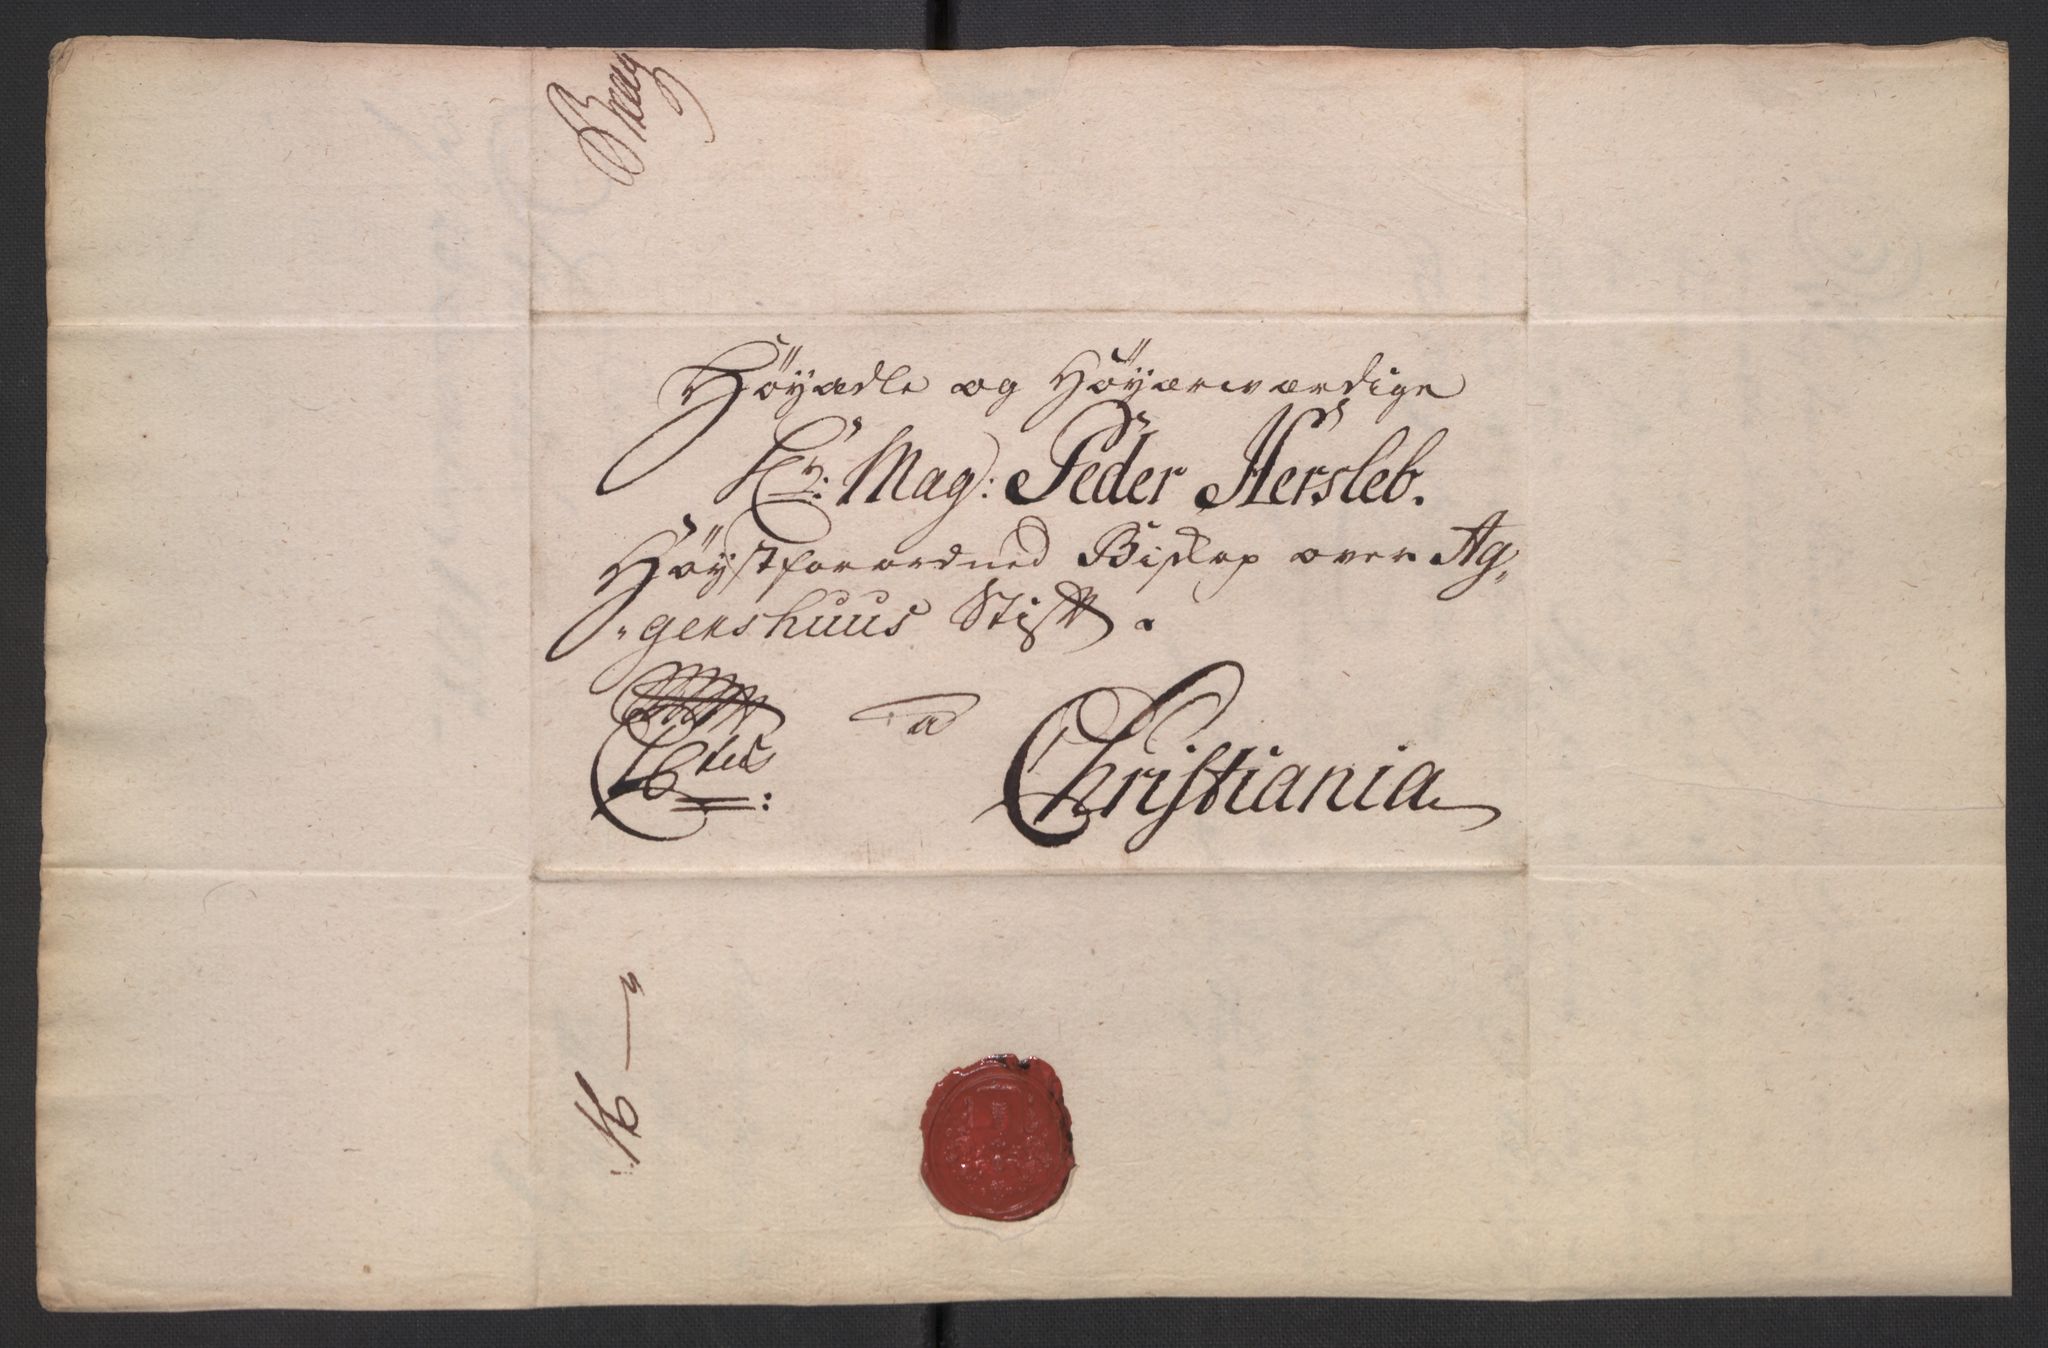 Brag
Höyædle og Höyærværdige
Hr: Mag: Peder Hersleb.
Höystforordned Biskop over Ag„
„gershuus Stift.
a Christiania
16